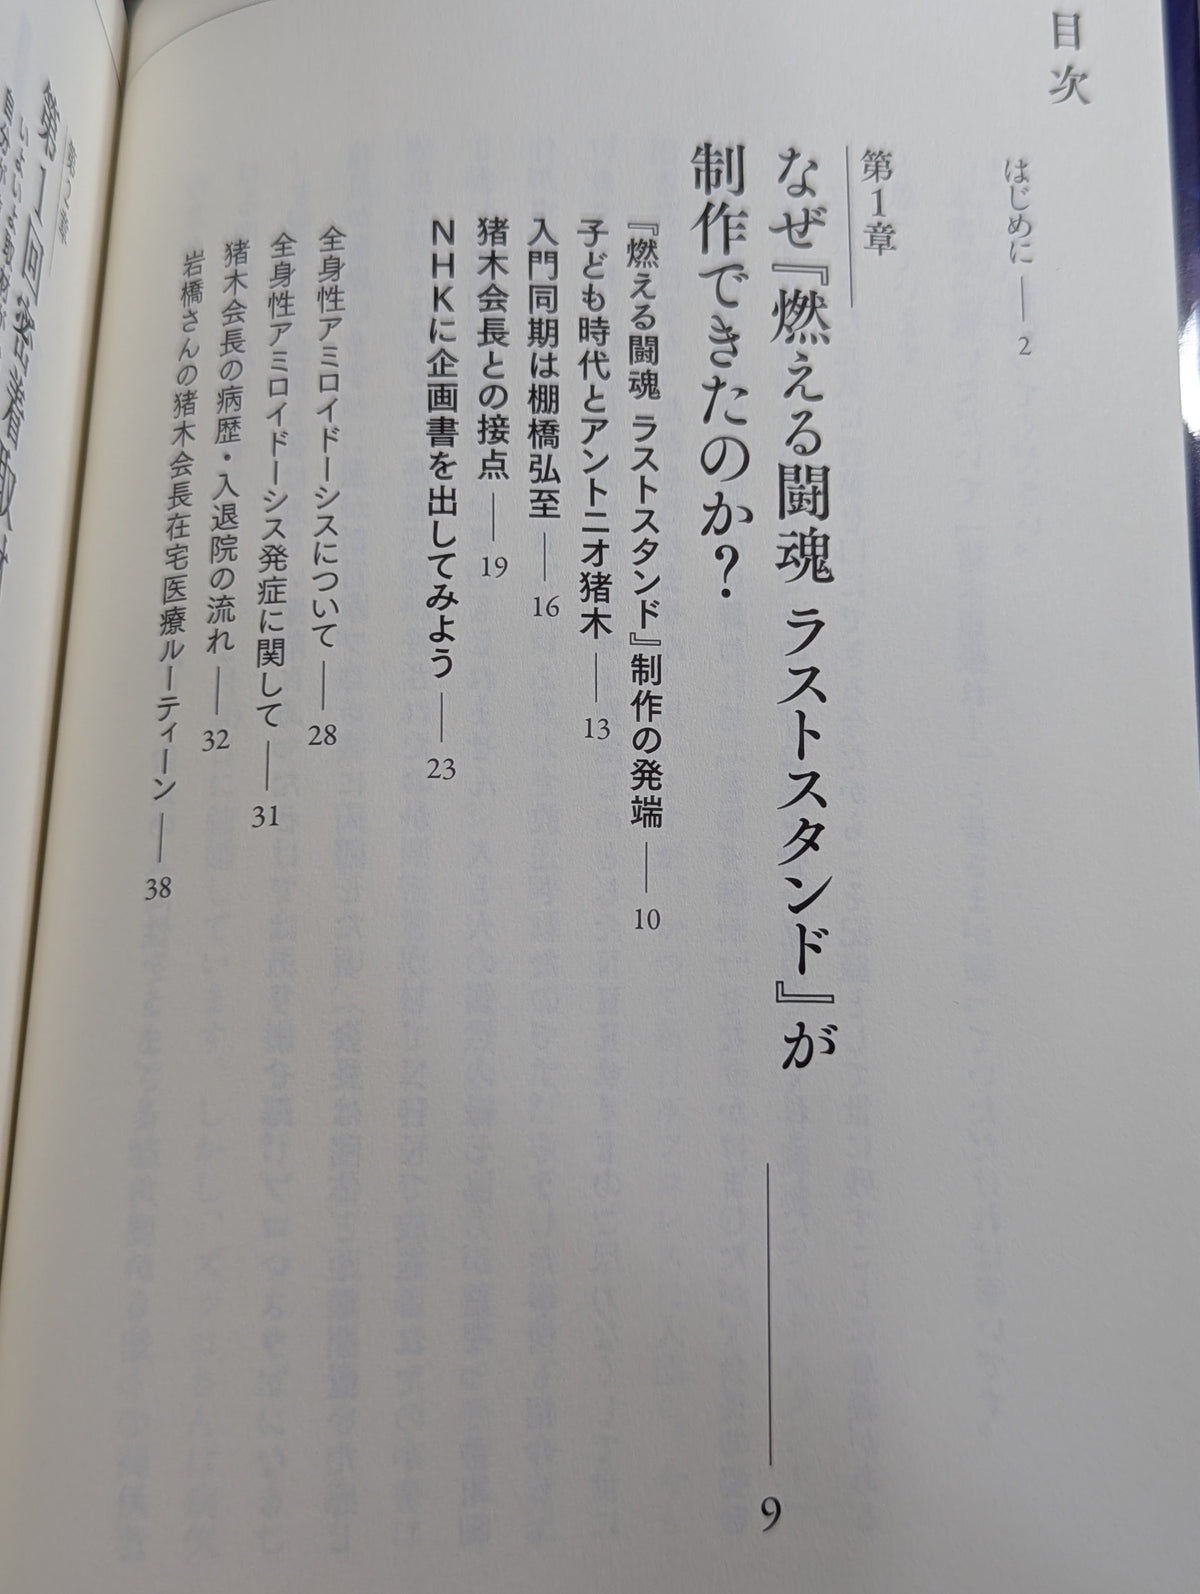 目次
はじめに ― 2
第1章
なぜ『燃える闘魂 ラストスタンド』が
制作できたのか? ― 9
『燃える闘魂 ラストスタンド』制作の発端 ― 10
子ども時代とアントニオ猪木 ― 13
入門同期は棚橋弘至 ― 16
猪木会長との接点 ― 19
NHKに企画書を出してみよう ― 23
全身性アミロイドーシスについて ― 28
全身性アミロイドーシス発症に関して ― 31
猪木会長の病歴・入退院の流れ ― 32
岩橋さんの猪木会長在宅医療ルーティーン ― 38
第2章
第1回密着取材